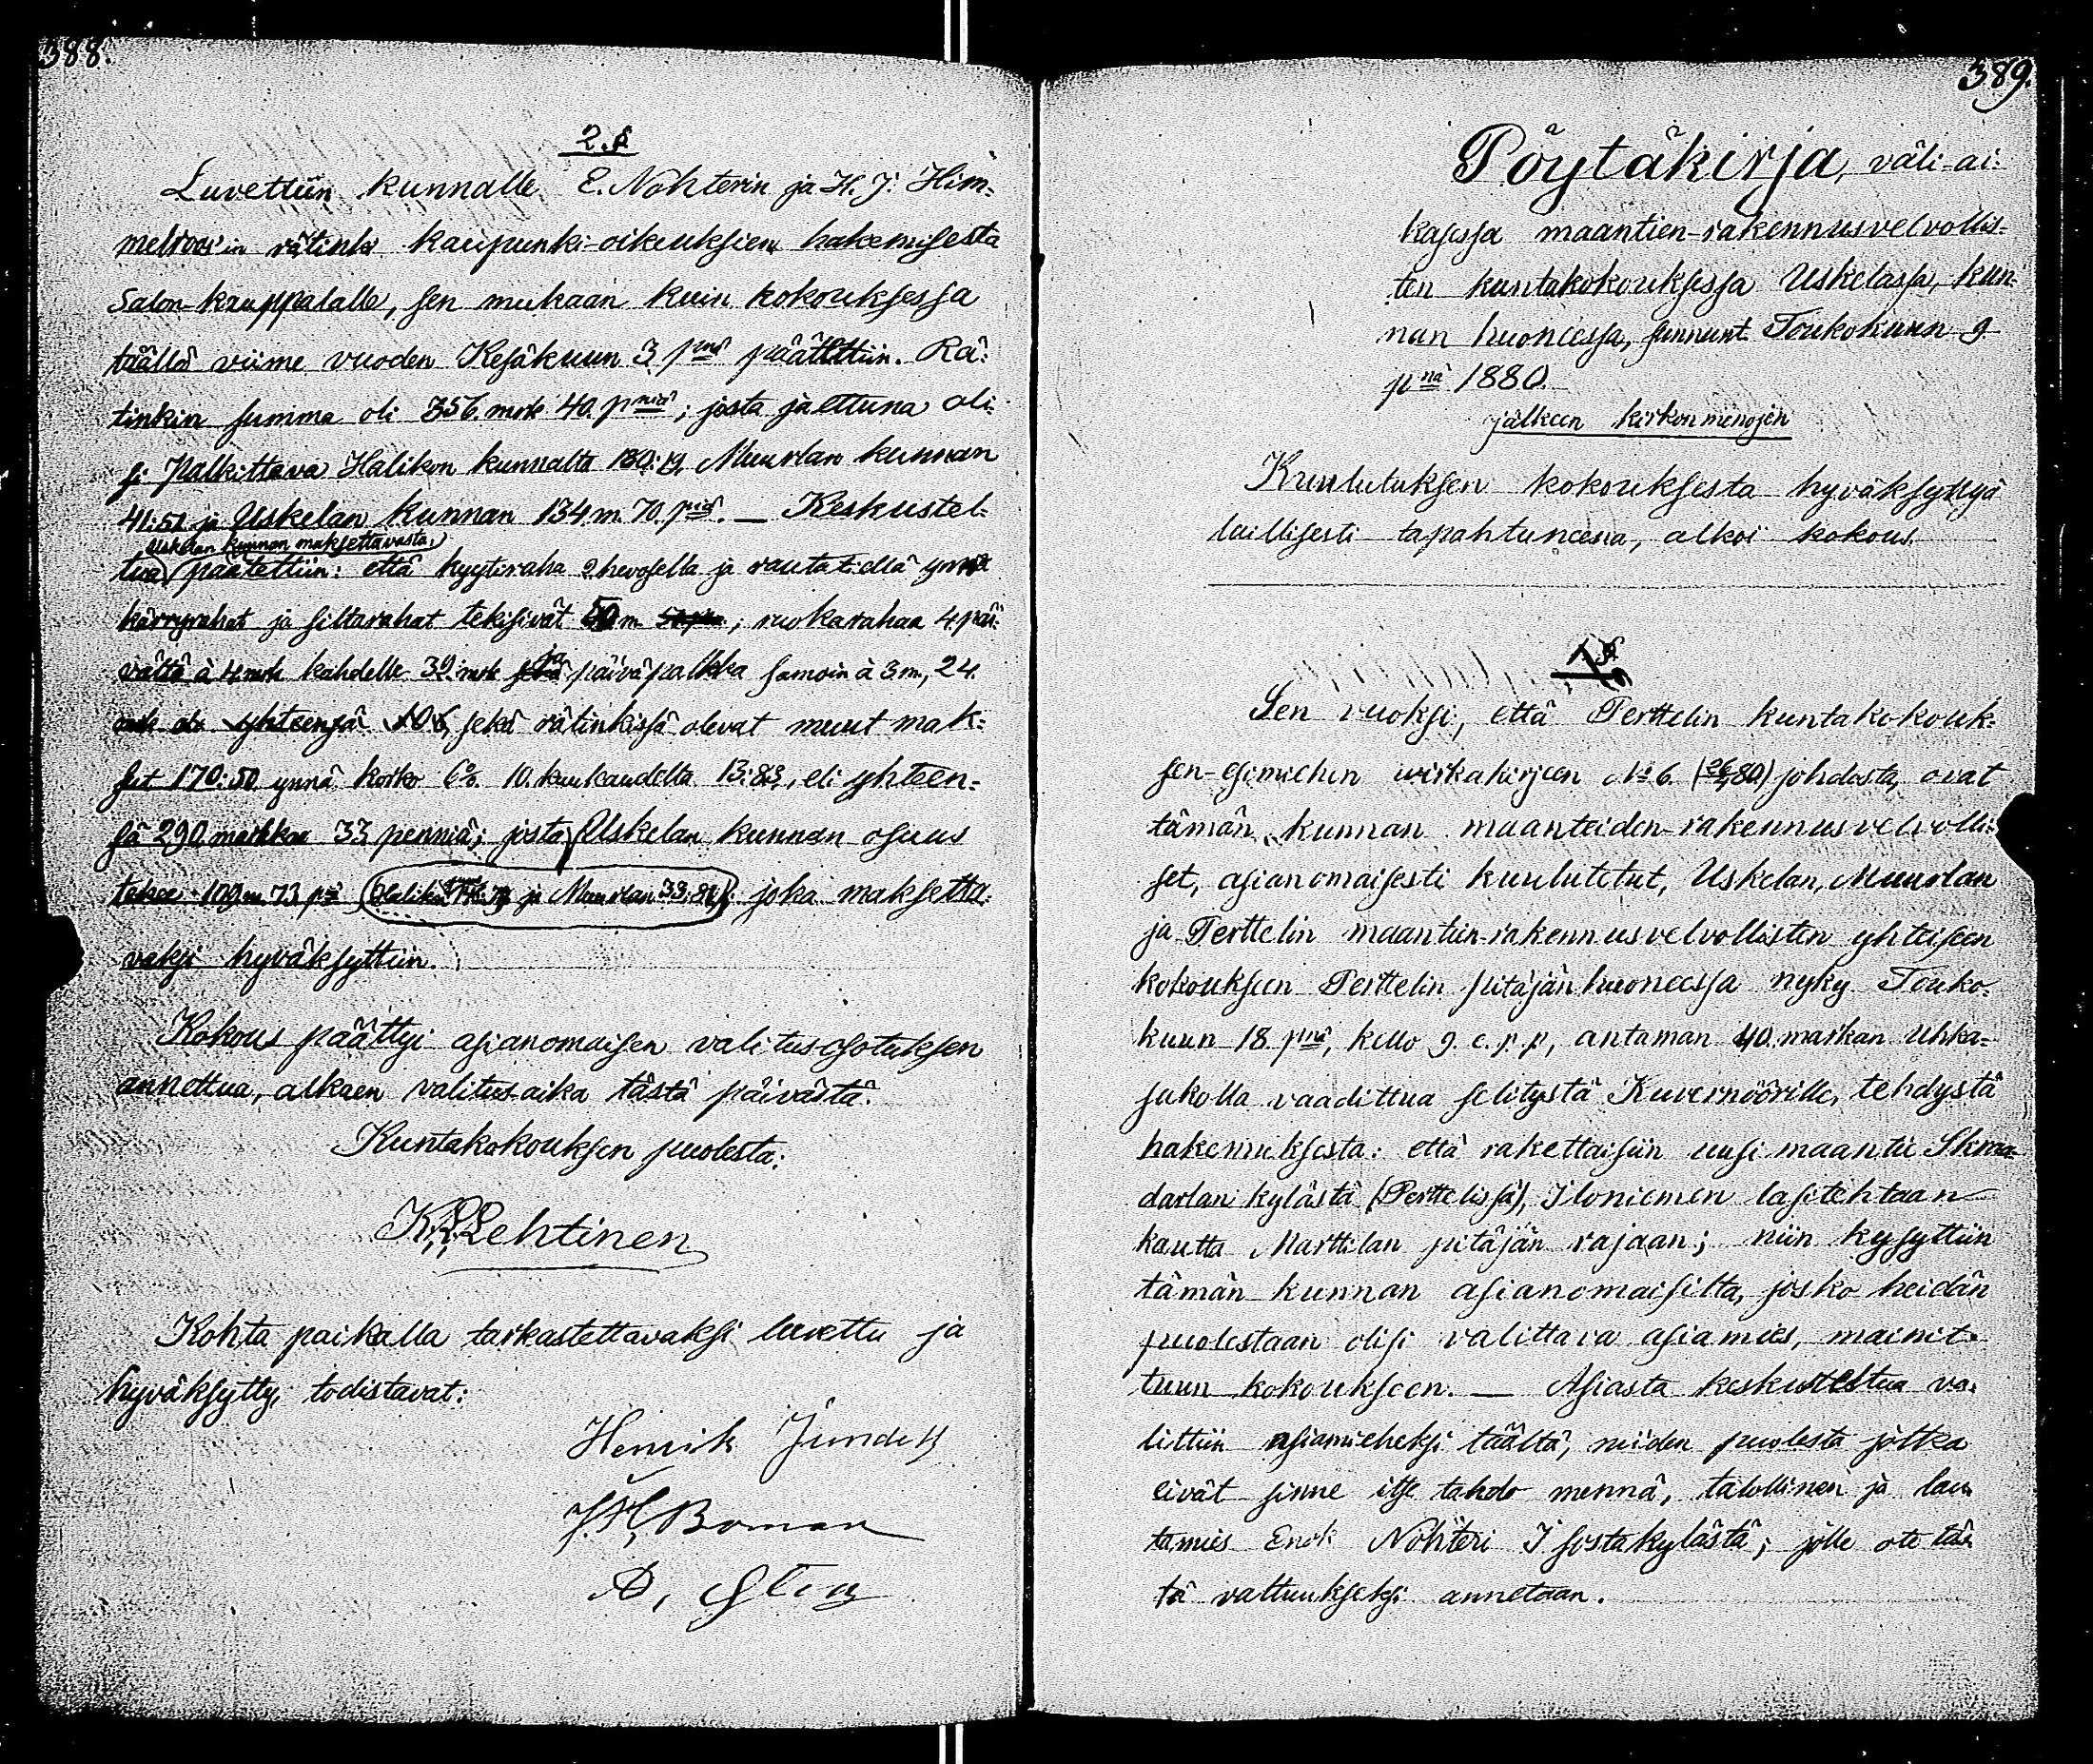 388.
2.§
Luvettiin kunnalle E. Nohterin ja H. J. Him-
melroos'in rätinki kaupunki-oikeuksien hakemisesta
Salon-kauppalalle, sen mukaan kuin kokouksessa
täällä viime vuoden Kesäkuun 3 pnä päätettiin. Rä-
tinkin summa oli 356. mrk 40. pniä; josta jaettuna oli-
si palkittava Halikon kunnalta 180:19. Muurlan kunnan
41:51 ja Uskelan kunnan 134 m 70. pniä. — Keskustel-
Uskelan kunnan maksettavasta,
tua päätettiin: että kyytiraha 2 hevosella ja rautatiellä ynnä
kärryrahat ja siltarahat tekisivät 50 m. , ruokarahaa 4. päi-
vältä à 4 mrk kahdelle 32. mrk ja päiväpalkka samoin à 3 m, 24.
yhteensä 106, sekä rätinkissä olevat muut mak-
sut 170:50 ynnä korko 6% 10. kuukaudelta 13:83, eli yhteen-
sä 290 markkaa 33 penniä; josta Uskelan kunnan osuus
tekee 109 m 73 pä (Halikon ja Muurlan 33,81) joka maksetta-
vaksi hyväksyttiin.
Kokous päättyi asianomaisen valitusosotuksen
annettua, alkaen valitus-aika tästä päivästä.
Kuntakokouksen puolesta:
K. Lehtinen
Kohta paikalla tarkastettavaksi luvettu ja
hyväksytty, todistavat:
Henrik
J. H. Boman
A,
389.
Pöytäkirja, väli-ai-
kasessa maantien-rakennusvelvollis-
ten kuntakokouksessa Uskelassa, kun-
nan huoneessa, sunnunt. Toukokuun 9.
pnä 1880.
jälkeen kirkonmenojen
Kuulutuksen kokouksesta hyväksyttyä
laillisesti tapahtuneena, alkoi kokous.
1 §
Sen vuoksi, että Perttelin kuntakokouk-
sen-esimiehen wirkakirjeen No 6. (26/4 80) johdosta, ovat
tämän kunnan maanteiden-rakennusvelvolli-
set, asianomaisesti kuulutetut, Uskelan, Muurlan
ja Perttelin maantien-rakennusvelvollisten yhteiseen
kokoukseen Perttelin pitäjänhuoneessa nyky Touko-
kuun 18 pnä, kello 9 e. p. p, antaman 40. markan Uhka-
sakolla vaadittua selitystä Kuvernöörille, tehdystä
hakemuksesta: että rakettaisiin uusi maantie Skraa-
darlan kylästä (Perttelissä), Iloniemen lasitehtaan
kautta Marttilan pitäjän rajaan; niin kysyttiin
tämän kunnan asianomaisilta, josko heidän
puolestaan olisi valittava asiamies, mainit-
tuun kokoukseen. — Asiasta keskusteltua va-
littiin asiamieheksi täältä, niiden puolesta jotka
eivät sinne itse tahdo mennä, talollinen ja lau-
tamies Enok Nohteri Isostakylästä; jolle ote täs-
tä valtuukseksi annetaan.